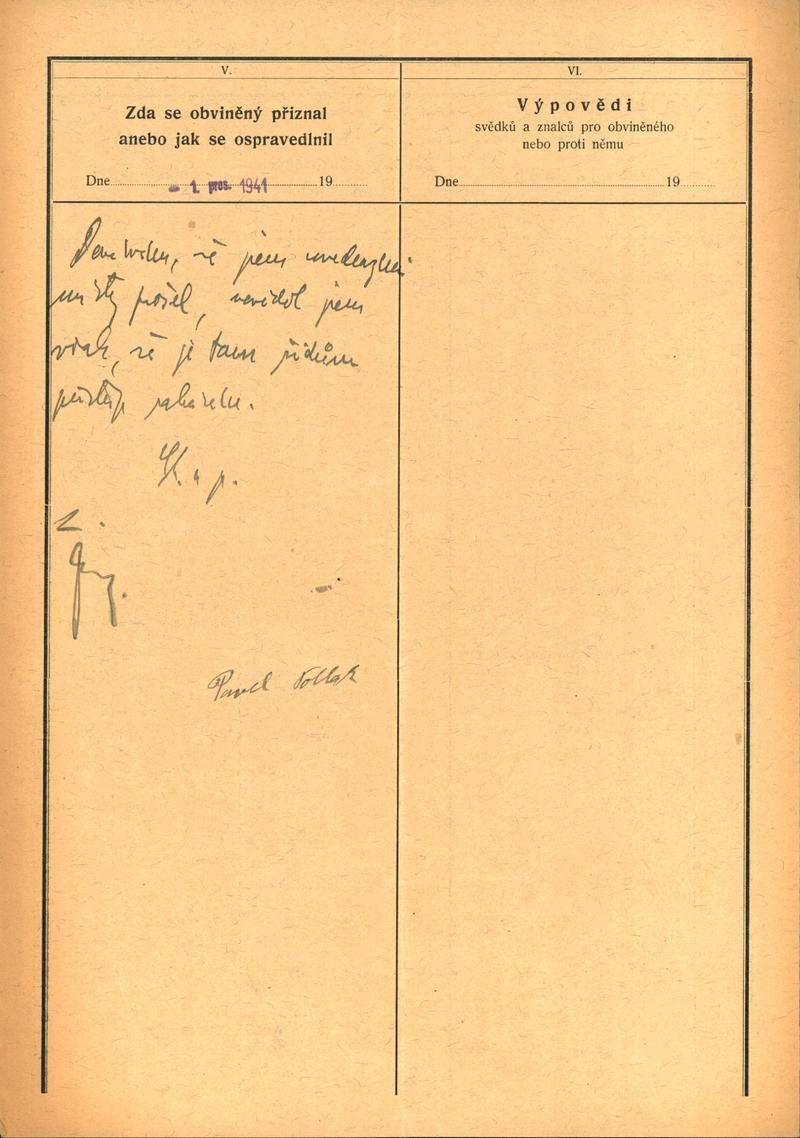 V.
Zda se obviněný přiznal
anebo jak se ospravedlnil
Dne - 1. pros. 1941 19
že jsem uvedenými
místy prošel, neviděl jsem
však, že je tam židům
přístup zakázán.
Pavel Pollak
VI.
Výpovědi
svědků a znalců pro obviněného
nebo proti němu
Dne 19